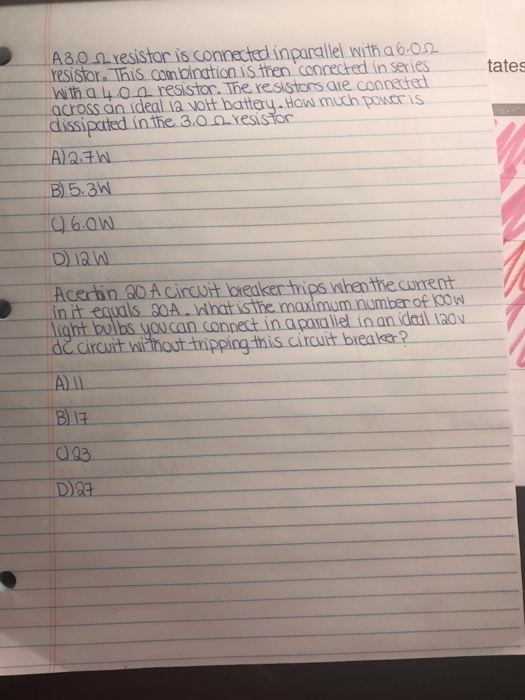 A 3.0 Ω resistor is connected in parallel with a 6.0Ω
resistor. This combination is then connected in series
with a 4.0 Ω resistor. The resistors are connected
across an ideal 12 volt battery. How much power is
dissipated in the 3.0 Ω resistor
A) 2.7W
B) 5.3W
C) 6.0W
D) 12W
A certain 20 A circuit breaker trips when the current
in it equals 20A. What is the maximum number of 100W
light bulbs you can connect in a parallel in an ideal 120v
dc circuit without tripping this circuit breaker?
A) 11
B) 17
C) 23
D) 27
tates